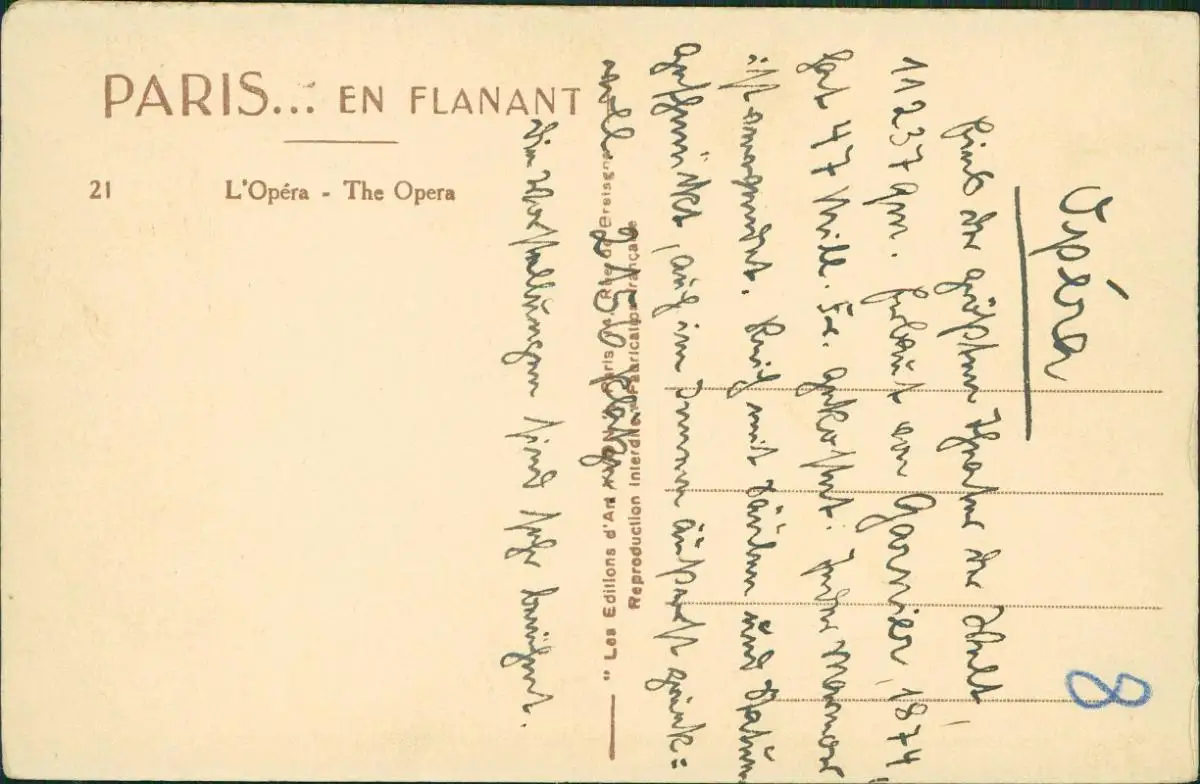 PARIS... EN FLANANT
21 L'Opéra - The Opera
" Les Editions d'Art Paris Rue de Bretagne
Reproduction Interdite Fabrication Française
Opéra
Eins der größten Theater der Welt,
11237 qm. Erbaut von Garnier, 1874,
hat 47 Mill. Fr. gekostet. Jede Marmor
ist angewendet. Reich mit Säulen und Statuen
geschmückt, auch im Innern äußerst prunk=
voll. 2150 Plätze.
Die Vorstellungen sind sehr berühmt.
8